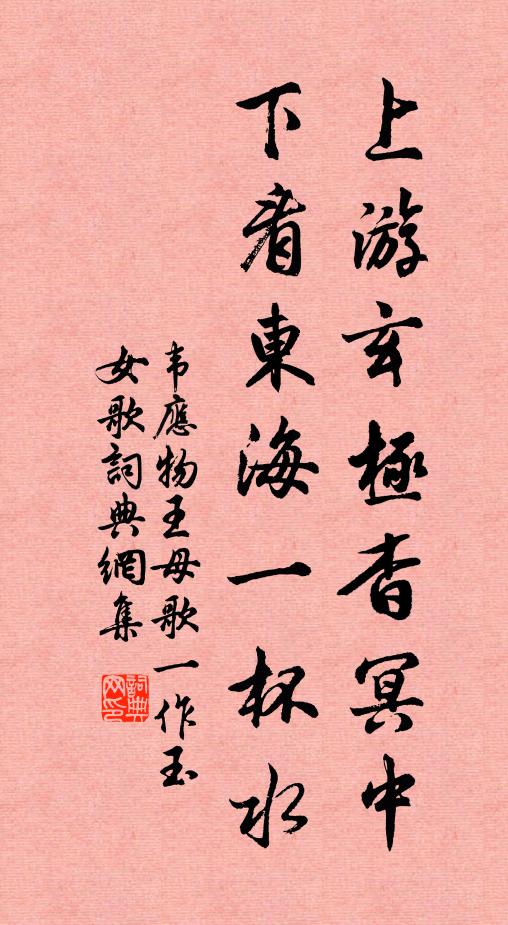 上游玄極杳冥中
下看東海一杯水
韦應物王母歌一作玉
女歌詞典網集
詞典网印